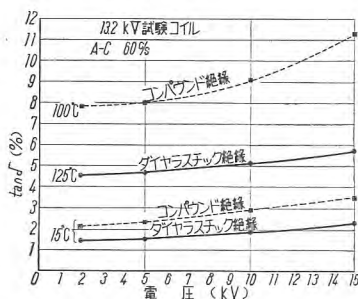 12
11
10
9
8
7
6
5
4
3
2
1
0
13.2 kV試験コイル
A-C 60%
コンパウンド絶縁
100℃
ダイヤラスチック絶縁
125℃
コンパウンド絶縁
ダイヤラスチック絶縁
15℃
tanδ (%)
0 1 2 3 4 5 6 7 8 9 10 11 12 13 14 15
電圧 (KV)